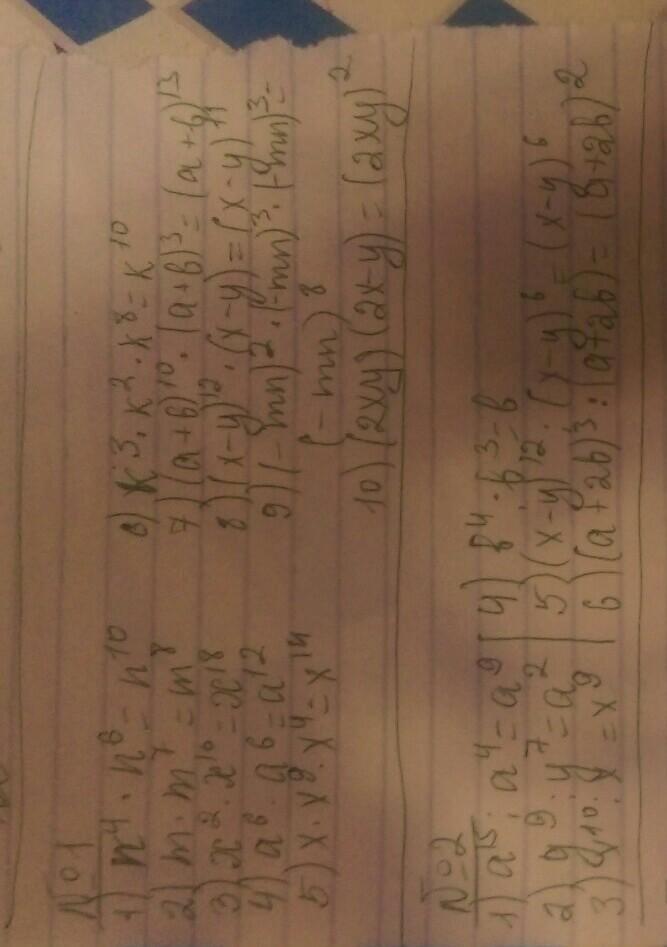 №1
1) n⁴ · n⁶ = n¹⁰
2) m · m⁷ = m⁸
3) x² · x¹⁶ = x¹⁸
4) a⁶ · a⁶ = a¹²
5) x · x⁹ · x⁴ = x¹⁴
6) к³ · к² · к⁸ = к¹⁰
7) (a+b)¹⁰ · (a+b)³ = (a+b)¹³
8) (x-y)¹² · (x-y) = (x-y)¹¹
9) (-mn)² · (-mn)³ · (-mn)³ =
(-mn)⁸
10) (2xy) (2x-y) = (2xy)²
№2
1) a¹⁵ : a⁴ = a⁹
2) y⁹ : y⁷ = a²
3) x¹⁰ : x = x⁹
4) b⁴ : b³ = b
5) (x-y)¹² : (x-y)⁶ = (x-y)⁶
6) (a+2b)³ : (a+2b) = (a+2b)²